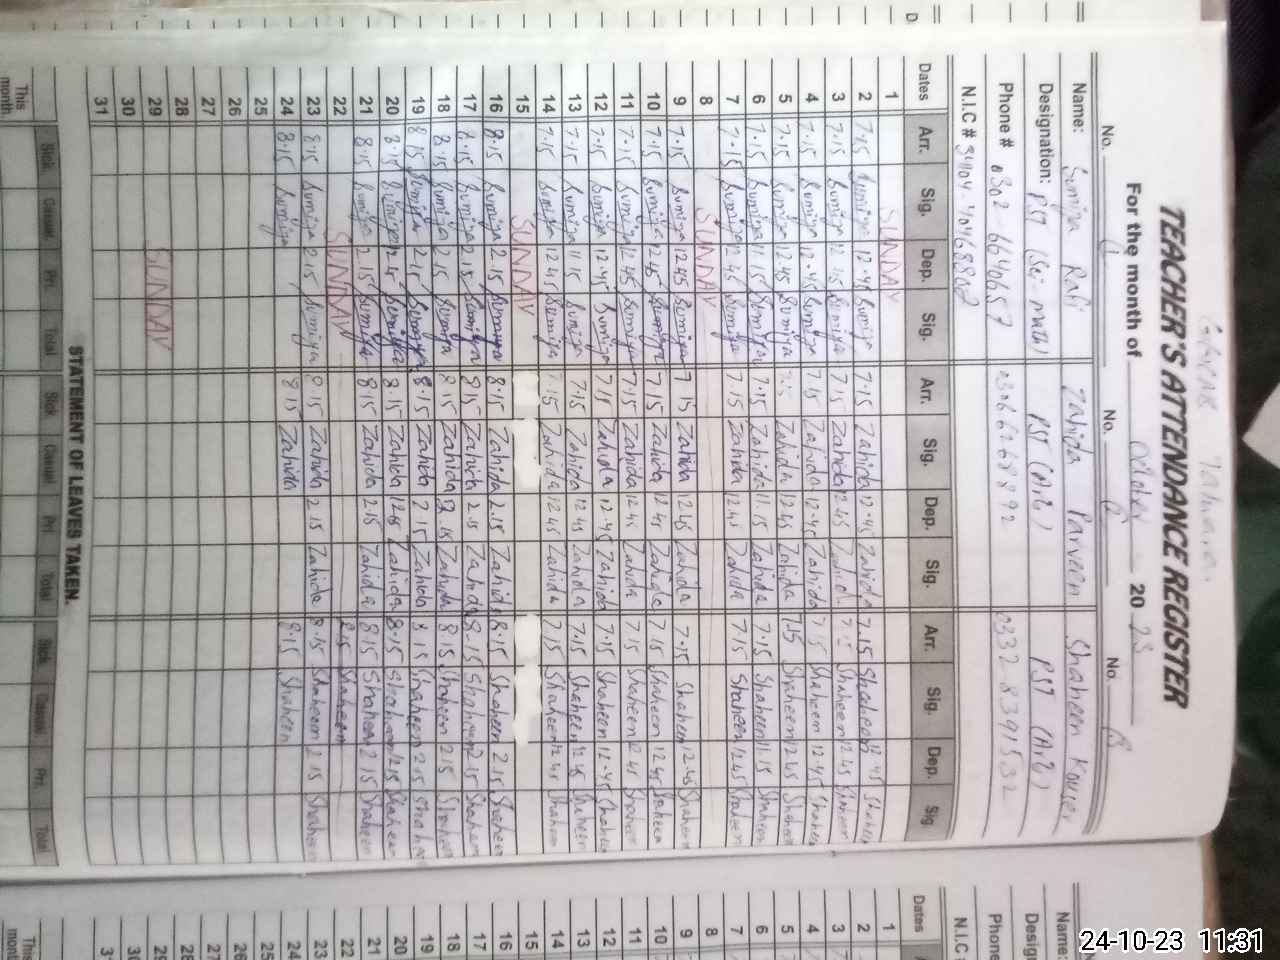 TEACHER'S ATTENDANCE REGISTER
For the month of October 2023
No. No. No.
Name: Sumiya Rafi Zahida Parveen Shaheen Kouser
Designation: PST (Sci-math) PST (Arts) PST (Arts)
Phone # 0302-6640657
N.I.C #
Dates Arr. Sig. Dep. Sig. Arr. Sig. Dep. Sig. Arr. Sig. Dep. Sig.
1 SUNDAY
2 7.15 Sumiya 12.45 Sumiya 7.15 Zahida 12.45 Zahida 7.15 Shaheen 12.45 Shaheen
3 7.15 Sumiya 12.45 Sumiya 7.15 Zahida 12.45 Zahida 7.15 Shaheen 12.45 Shaheen
4 7.15 Sumiya 12.45 Sumiya 7.15 Zahida 12.45 Zahida 7.15 Shaheen 12.45 Shaheen
5 7.15 Sumiya 12.45 Sumiya Zahida 12.45 Zahida 7.15 Shaheen 12.45 Shaheen
6 7.15 Sumiya 11.15 Sumiya 7.15 Zahida 11.15 Zahida 7.15 Shaheen 11.15 Shaheen
7 7.15 Sumiya 12.45 Sumiya 7.15 Zahida 12.45 Zahida 7.15 Shaheen 12.45 Shaheen
8 SUNDAY
9 7.15 Sumiya 12.45 Sumiya 7 15 Zahida 12.45 Zahida 7.15 Shaheen 12.45 Shaheen
10 7.15 Sumiya 12.45 Sumiya 7.15 Zahida 12.45 Zahida 7.15 Shaheen 12.45 Shaheen
11 7.15 Sumiya 12.45 Sumiya 7.15 Zahida 12.45 Zahida 7.15 Shaheen 12.45 Shaheen
12 7.15 Sumiya 12.45 Sumiya 7.15 Zahida 12.45 Zahida 7.15 Shaheen 12.45 Shaheen
13 7.15 Sumiya 11.15 Sumiya 7.15 Zahida Zahida 7.15 Shaheen Shaheen
14 7.15 Sumiya 12.45 Sumiya 7.15 Zahida 12.45 Zahida 7.15 Shaheen 12.45 Shaheen
15 SUNDAY
16 8.15 Sumiya 2.15 Sumiya 8.15 Zahida 2.15 Zahida 8.15 Shaheen 2.15 Shaheen
17 8.15 Sumiya 2.15 Sumiya 8.15 Zahida 2.15 Zahida 8.15 Shaheen 2.15 Shaheen
18 8.15 Sumiya 2.15 Sumiya 8.15 Zahida 2.15 Zahida 8.15 Shaheen 2.15 Shaheen
19 8.15 Sumiya 2.15 Sumiya 8.15 Zahida 2.15 Zahida 8.15 Shaheen 2.15 Shaheen
20 8.15 Sumiya Sumiya 8.15 Zahida Zahida 8.15 Shaheen Shaheen
21 8.15 Sumiya 2.15 Sumiya 8.15 Zahida 2.15 Zahida 8.15 Shaheen 2.15 Shaheen
22 SUNDAY Shaheen
23 8.15 Sumiya 2.15 Sumiya 8.15 Zahida 2.15 Zahida 8.15 Shaheen 2.15 Shaheen
24 8.15 Sumiya 8.15 Zahida 8.15 Shaheen
25
26
27
28
29 SUNDAY
30
31
STATEMENT OF LEAVES TAKEN.
Sick Casual Pri. Total Sick Casual Pri Total Sick. Casual Pri. Total
This month.
Dates
1
2
3
4
5
6
7
8
9
10
11
12
13
14
15
16
17
18
19
20
21
22
23
24
25
26
27
28
29
30
Name:
Phone
N.I.C
This month
24-10-23 11:31